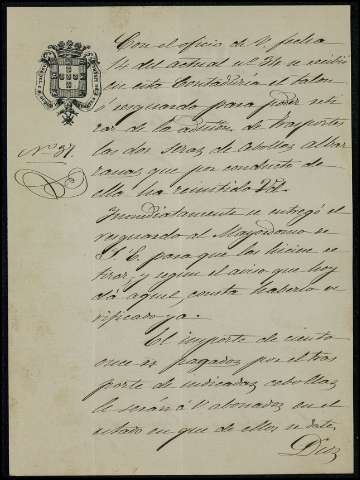 Nº 37.
Con el oficio de V. fecha
14 del actual nº 24 se recibió
en esta Contaduría el talon
ó resguardo para poder reti
rar de la de trasportes
las dos seras de cebollas albar
ranas que por conducto de
ella ha remitido Vd.
Inmediatamente se entregó el
resguardo al Mayordomo de
S. E. para que las hiciese re
tirar, y segun el aviso que hoy
dá aquel, consta haberlo ve
rificado ya.
El importe de ciento
once rs pagados por el tras
porte de indicadas cebollas
le serán á V. abonados en el
estado en que de ellos se date.
Dios